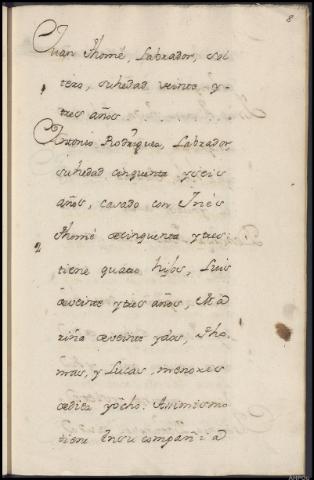 8
Juan Thomé, Labrador, sol
tero, suhedad veinte y-
1 tres años
Antonio Rodriguez, Labrador,
suhedad cinquenta yseis
años, casado con Inés
2 Thomé decinquenta ytres:
tiene quatro hijos, Luis
deveinte ytres años, Ma
riña deveinte ydos, Tho
mas, y Lucas, menores
dediez yocho: Assimismo
tiene Ensu compañia